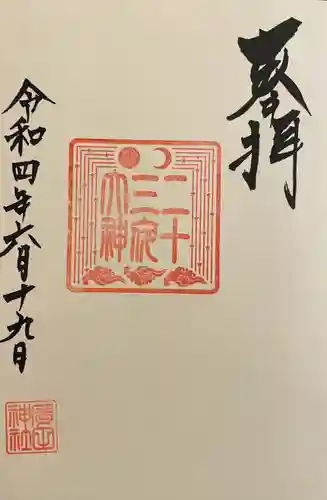 奉拝
二十
三夜
大神
令和四年六月十九日
神社